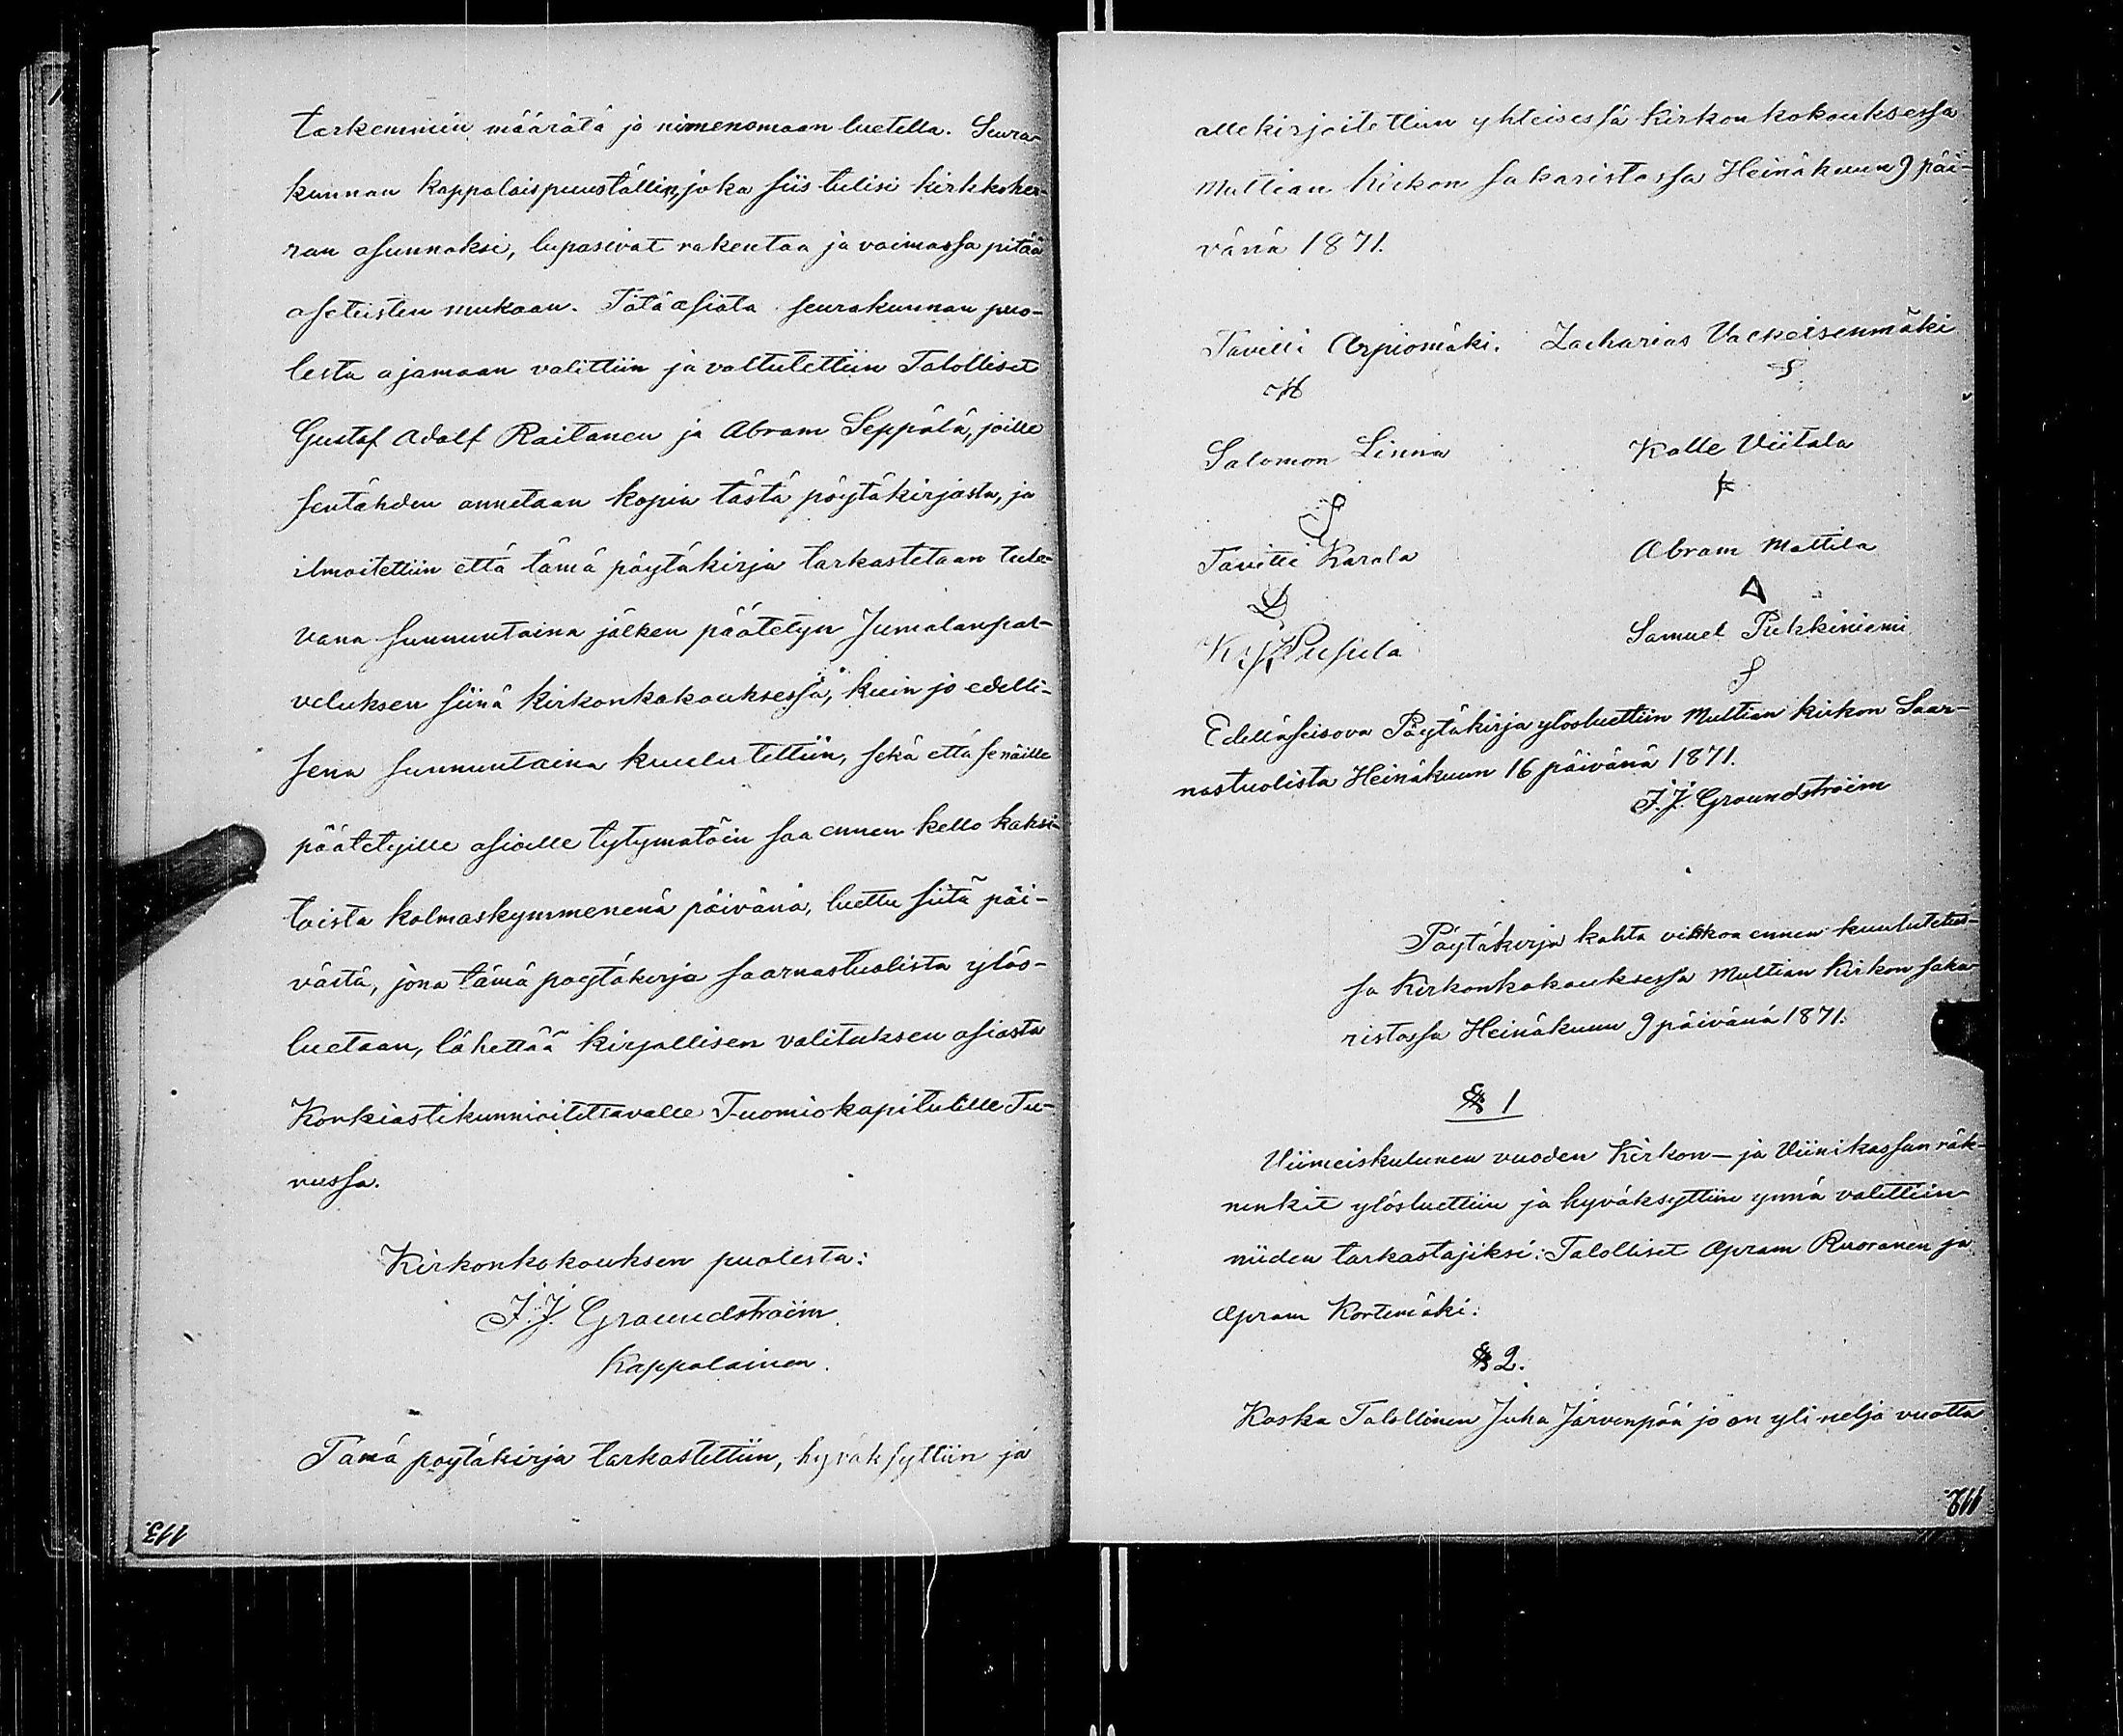 tarkemmin määrätä ja nimenomaan luetella. Seura-
kunnan kappalaispuuställin, joka siis tulisi kirkkoher-
ran asunnaksi, lupasivat rakentaa ja voimassa pitää
asetusten mukaan. Tätä asiata seurakunnan puo-
lesta ajamaan valittiin ja valtutettiin Talolliset
Gustaf Adolf Raitanen ja Abram Seppälä, joille
sentähden annetaan kopia tästä pöytäkirjasta, ja
ilmoitettiin että tämä pöytäkirja tarkastetaan tule-
vana sunnuntaina jälken päätetyn Jumalanpal-
veluksen siinä kirkonkokouksessa, kuin jo edelli-
senä sunnuntaina kuulutettiin, sekä että se näille
päätetyille asioille tytymätöin saa ennen kello kaksi-
toista kolmaskymmenenä päivänä, luettu siitä päi-
västä, jona tämä poytäkirja saarnastuolista ylös-
luetaan, lähettää kirjallisen valituksen asiasta
Korkiastikunnioitettavalle Tuomiokapitulille Tu-
russa.
Kirkonkokouksen puolesta:
J. J. Graundstroim
Kappalainen.
Tämä poytäkirja tarkastettiin, hyväksyttiin ja
113.
allekirjoitettiin yhteisessä Kirkon kokouksessa
Multian Kirkon sakaristossa Heinäkuun 9 päi-
vänä 1871.
Taviiti Arpiomäki. Zacharias Valkeisenmäki
Salomon Linna Kalle Viitala
Tavitti Karala Abram Mattila
K. J. Pusula Samuel Pukkiniemi
Edelläseisova Pöytäkirja ylösluettiin Multian kirkon Saar-
nastuolista Heinäkuun 16 päivänä 1871.
J. J. Graundstroim
Pöytäkirja kahta vikkoa ennen kuulutetus-
sa Kirkonkokouksessa Multian Kirkon saka-
ristossa Heinäkuun 9 päivänä 1871.
§ 1
Viimeiskulunen vuoden Kirkon- ja Viinikassan räk-
nenkit ylösluettiin ja hyväksyttiin ynnä valittiin
niiden tarkastajiksi: Talolliset Apram Ruoranen ja
Apram Kortemäki.
§ 2.
Koska Talollinen Juha Järvenpää jo on yli neljä vuotta
112.